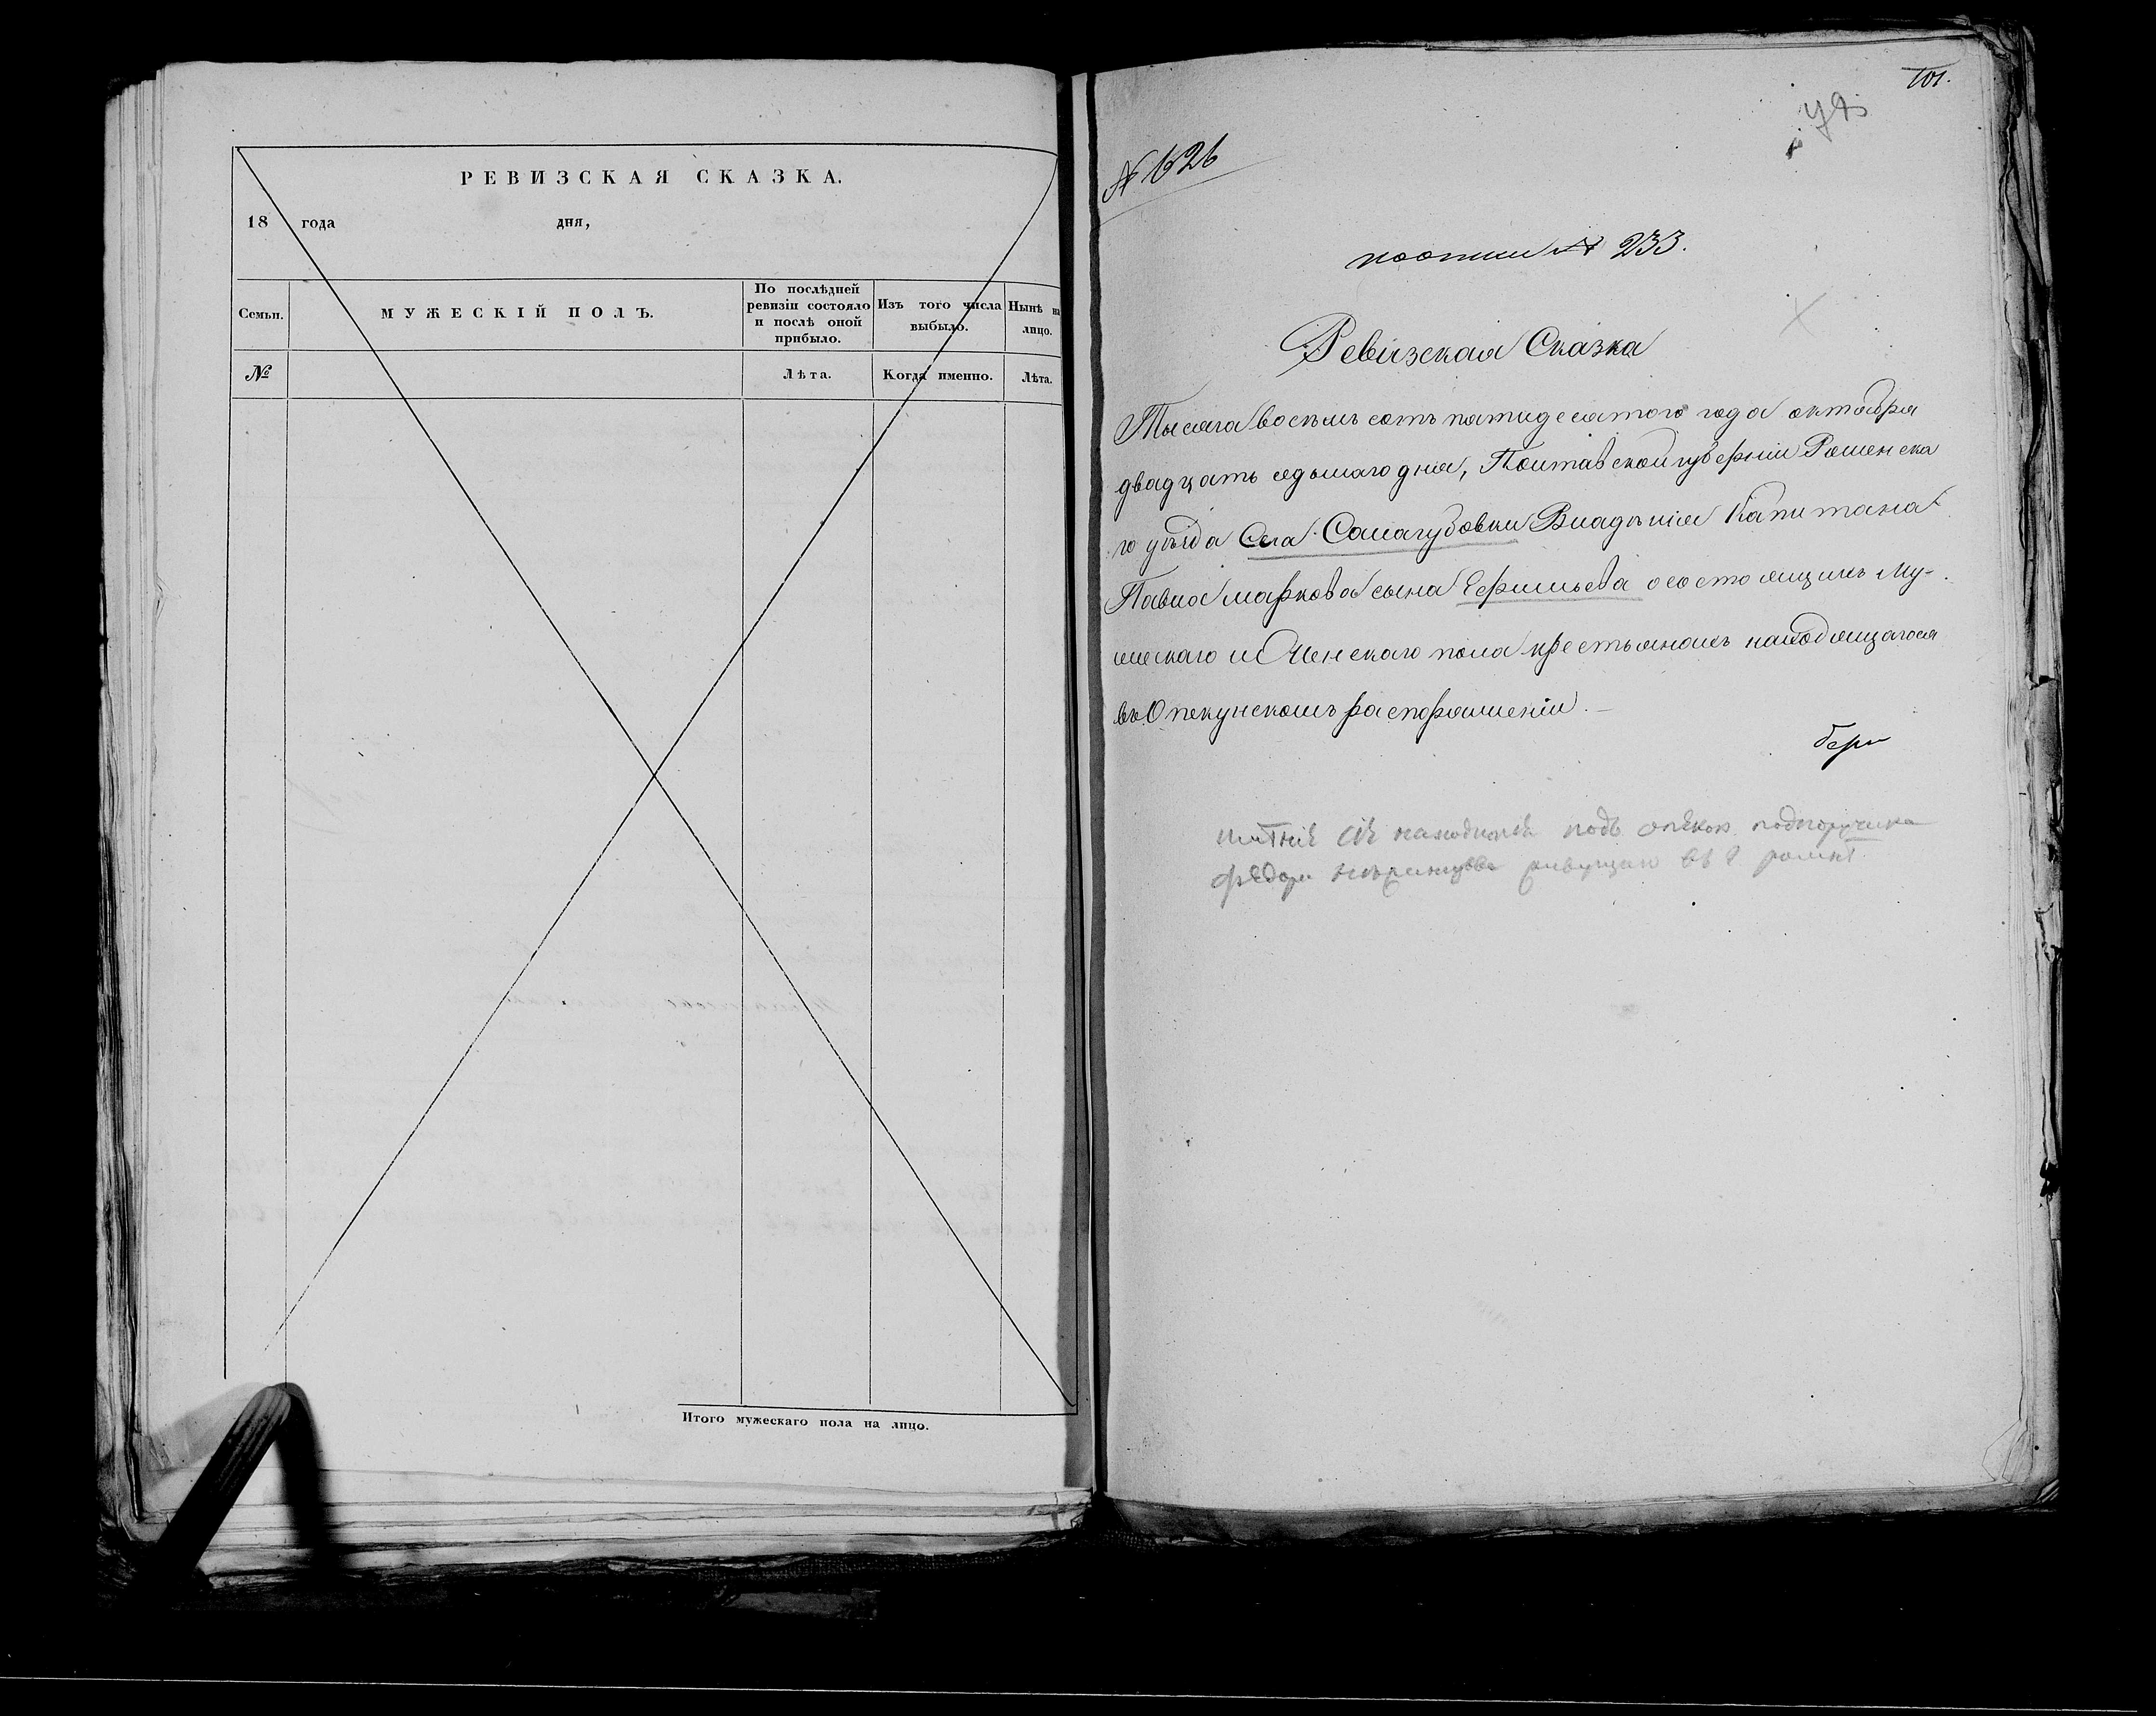 РЕВИЗСКАЯ СКАЗКА.
18 года дня,
Семьи.
МУЖЕСКІЙ ПОЛЪ.
По послѣдней ревизіи состояло и послѣ оной прибыло.
Изъ того числа выбыло.
Нынѣ на лицо.
№
Лѣта.
Когда именно.
Лѣта.
Итого мужескаго пола на лицо.
101.
№ 626
№ 233.
Ревизская Сказка
Тысяча восемь сотъ пятидесятого года октября
двадцать седьмаго дня, Полтавской губерніи Роменска
го уѣзда Села Салагубовки Владѣнія Капитана
Павла Маркова сына Ефимьева о состоящихъ му-
жескаго и Женскаго пола крестьянахъ находящагося
въ Опекунскомъ распоряженіи.
имѣніе сіе находится подъ опекою подпоручика